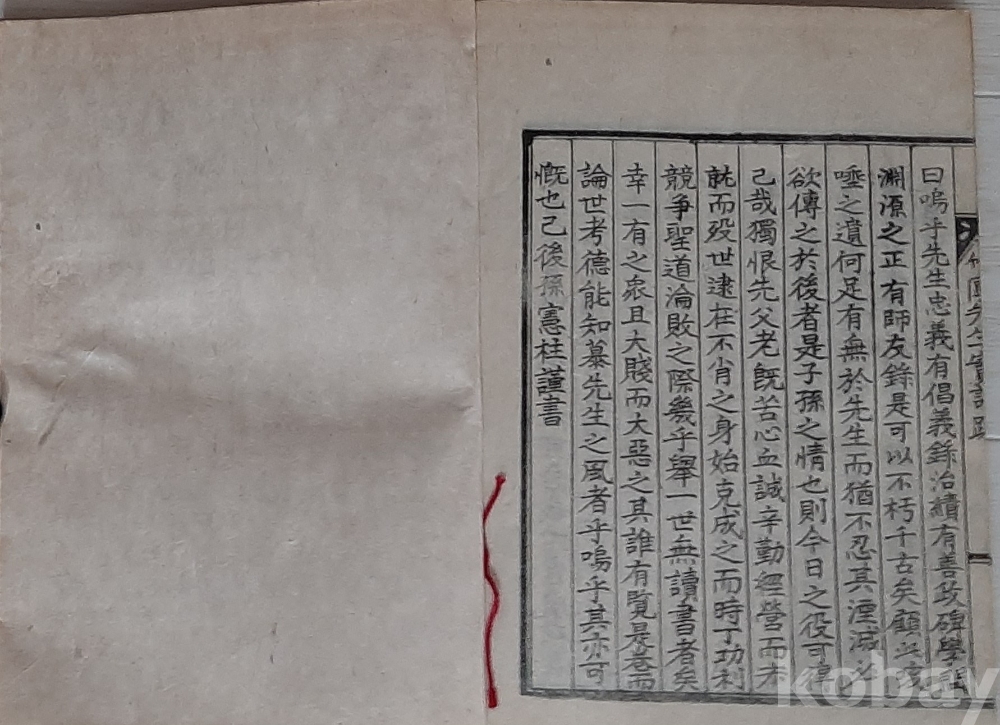 曰嗚乎先生忠義有倡義錄治績有善政碑學問
淵源之正有師友錄是可以不朽千古矣顧此咳
唾之遺何足有無於先生而猶不忍其湮滅必
欲傳之於後者是子孫之情也則今日之役可得
已哉獨恨先父老旣苦心血誠辛勤經營而未
就而歿世逮在不肖之身始克成之而時丁功利
競爭聖道淪敗之際幾乎擧一世無讀書者矣
幸一有之衆且大賤而大惡之其誰有覽是卷而
論世考德能知慕先生之風者乎嗚乎其亦可
慨也已後孫憲柱謹書
先生實記跋
kobay